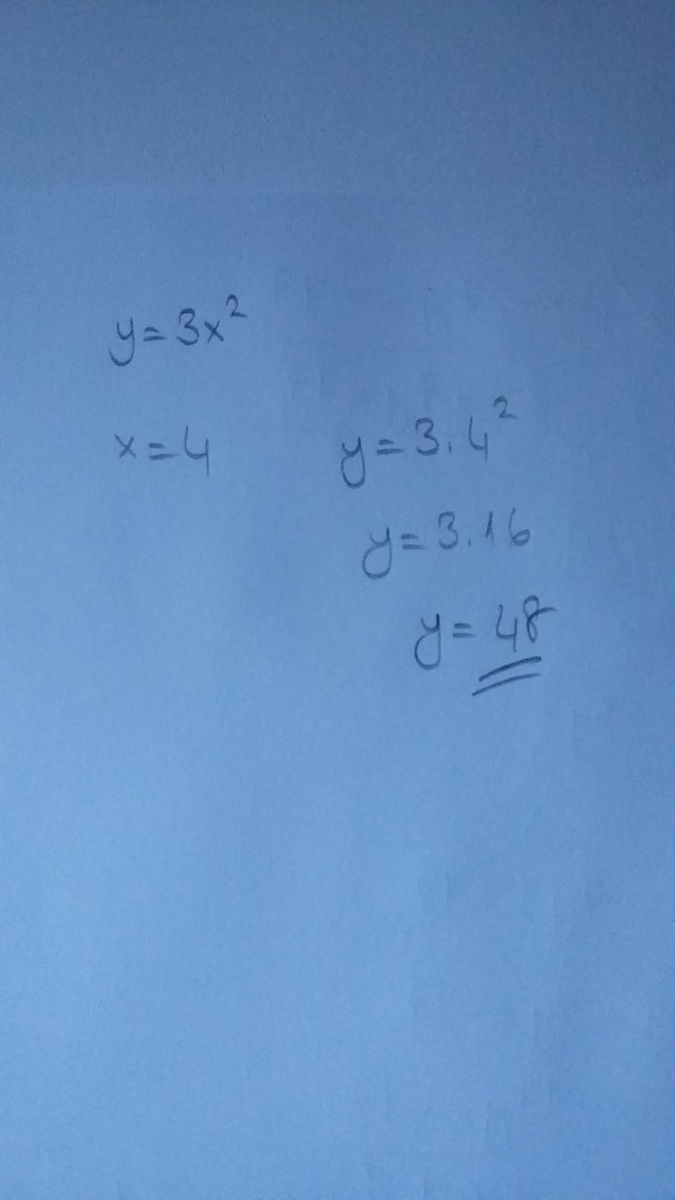 y=3x²
x=4
y=3.4²
y=3.16
y=48